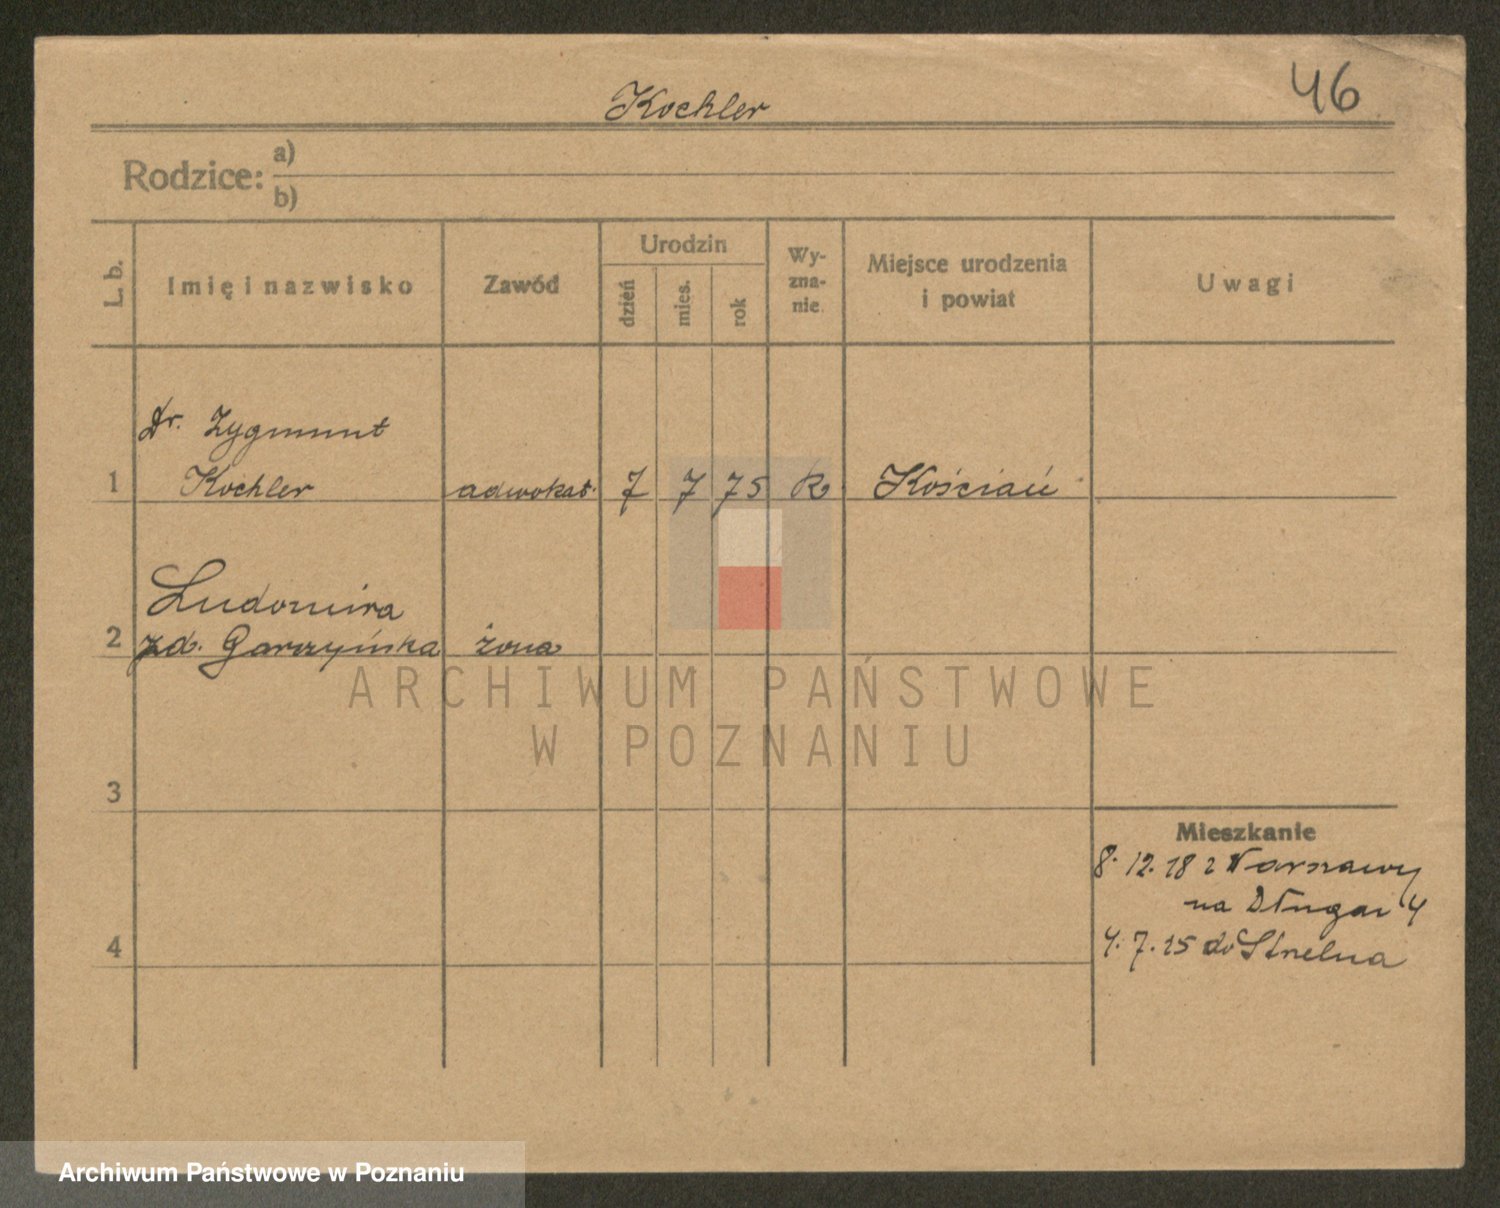 46
Kochler
Rodzice: a)
b)
L. b.
Imię i nazwisko
Zawód
Urodzin
dzień
mies.
rok
Wy-
zna-
nie
Miejsce urodzenia
i powiat
Uwagi
Dr. Zygmunt
1 Kochler adwokat. 7 7 75 R. Kościań
Ludomira
2 zd. Garczyńska żona
3
Mieszkanie
8. 12. 18 z Warszawy
na Długa 4
4 4. 7. 25 do Strelna
ARCHIWUM PAŃSTWOWE
W POZNANIU
Archiwum Państwowe w Poznaniu